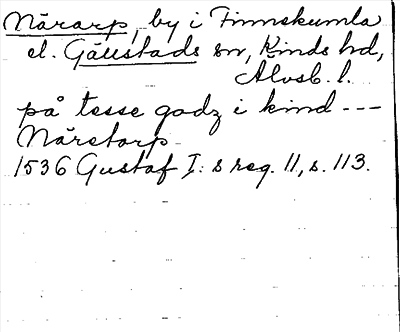 Närarp, by i Finnskumla
el. Gällstads sn, Kinds hd,
Älvsb. l.
på tesse godz i kind ---
Näretorp
1536 Gustaf I:s reg. 11, s. 113.